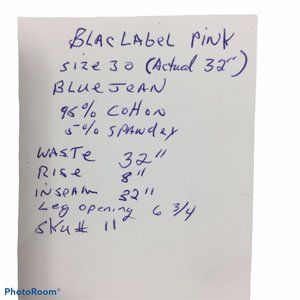 BLAC LABEL PINK
SIZE 30 (Actual 32")
BLUE JEAN
95% COTTON
5% SPANDEX
WASTE 32"
RISE 8"
INSEAM 32"
Leg opening 6 3/4
SKU# 11
PhotoRoom®